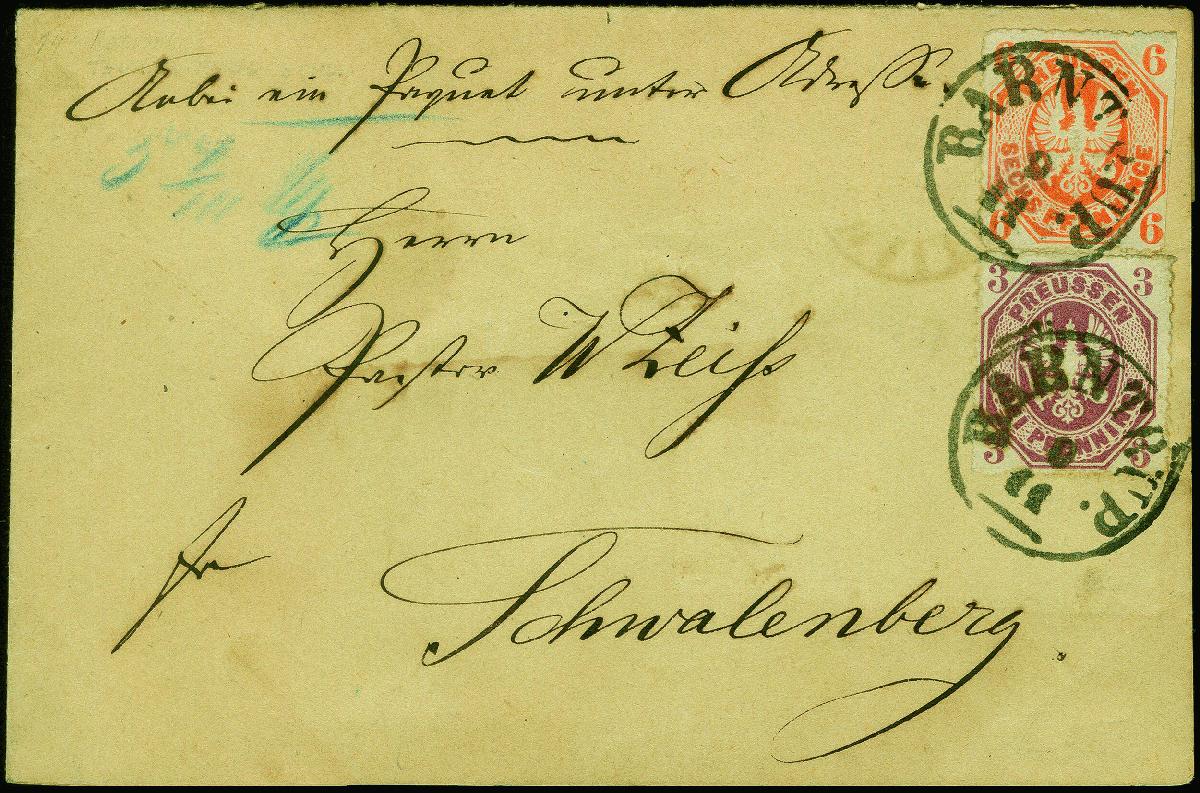 Anbei ein Paquet unter Adresse.
Herrn
Pastor W Zeiß
fr
Schwalenberg
6 6
PREUSSEN
SECHS PFENNINGE
6 6
BARNTRUP.
3 3
PREUSSEN
DREI PFENNINGE
3 3
BARNTRUP.